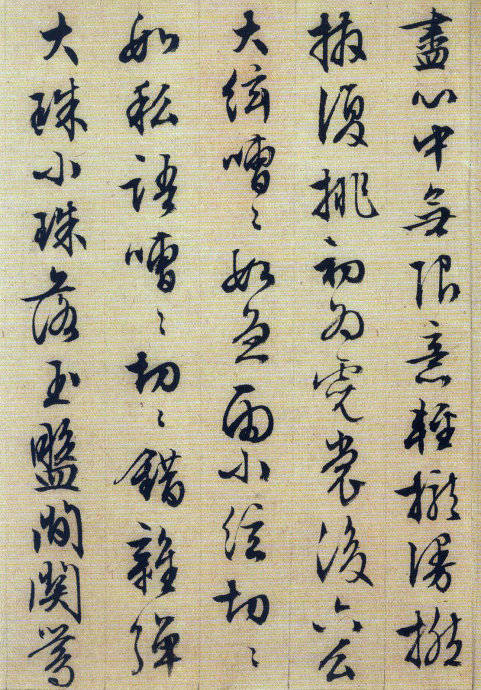 盡心中無限意輕攏慢撚
撥復挑初為霓裳後六么
大絃嘈々如急雨小絃切々
如私語嘈々切々錯雜彈
大珠小珠落玉盤間關鶯